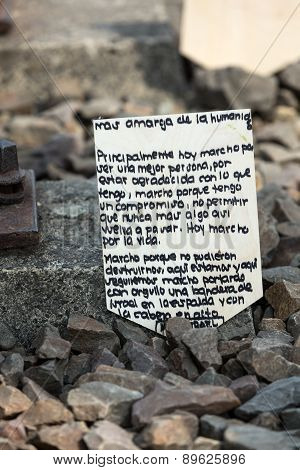 mas amarga de la humanid
Principalmente hoy marcho por
ser una mejor persona, por
estar agradecida con lo que
tengo, marcho porque tengo
un compromiso, no permitir
que nunca mas algo asi
vuelva a pasar. Hoy marcho
por la vida.
Marcho porque no pudieron
destruirnos, aqui estamos y aqui
seguiremos marcho portando
con orgullo una bandera de
Israel en la espalda y con
la cabeza en alto